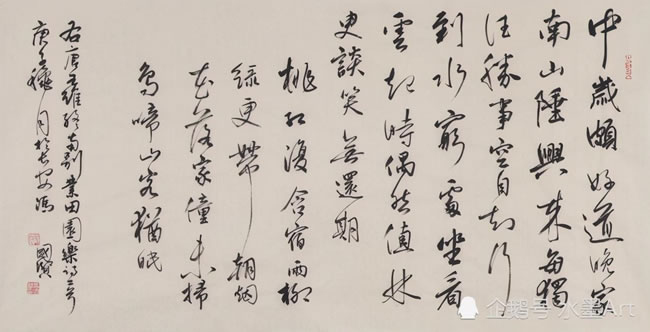 中歲頗好道晚家
南山陲興來每獨
往勝事空自知行
到水窮處坐看
雲起時偶然值林
叟談笑無還期
桃紅復含宿雨柳
綠更帶朝烟
花落家僮未掃
鳥啼山客猶眠
右唐王維終南別業田園樂詩二首
庚子穐月於長安馮
國賢
企鹅号 水墨Art